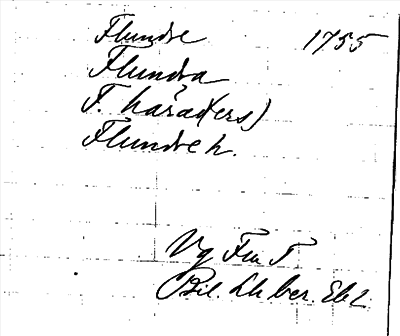 Flundre 1755
Flundra
F. härad(ers)
Flundre h.
Vg Fu T
Bil. Lh ber. Eb2